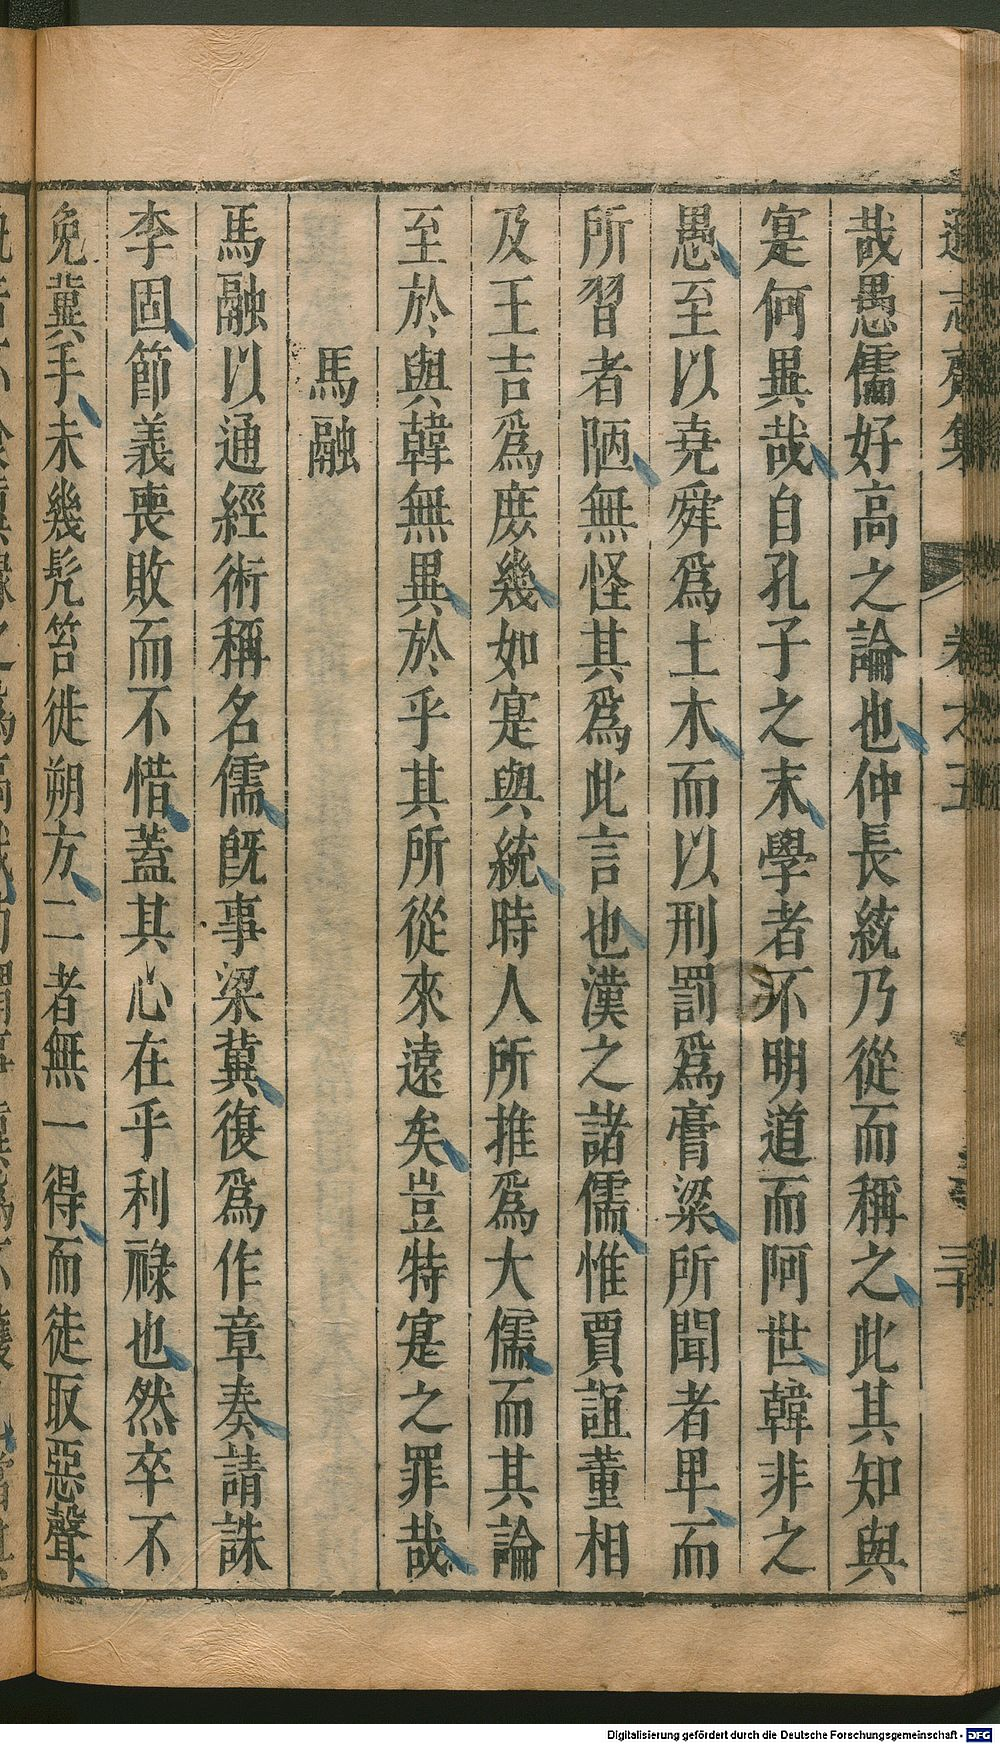 遜志齋集 卷之五 三十
哉愚儒好高之論也仲長統乃從而稱之此其知與
寔何異哉自孔子之末學者不明道而阿世韓非之
愚至以堯舜爲土木而以刑罰爲膏粱所聞者卑而
所習者陋無怪其爲此言也漢之諸儒惟賈誼董相
及王吉爲庻幾如寔與統時人所推爲大儒而其論
至於與韓無異於乎其所從來遠矣豈特寔之罪哉
馬融
馬融以通經術稱名儒旣事梁冀復爲作章奏請誅
李固節義喪敗而不惜蓋其心在乎利祿也然卒不
免冀手未幾髠笞徙朔方二者無一得而徒取惡聲
Digitalisierung gefördert durch die Deutsche Forschungsgemeinschaft - DFG